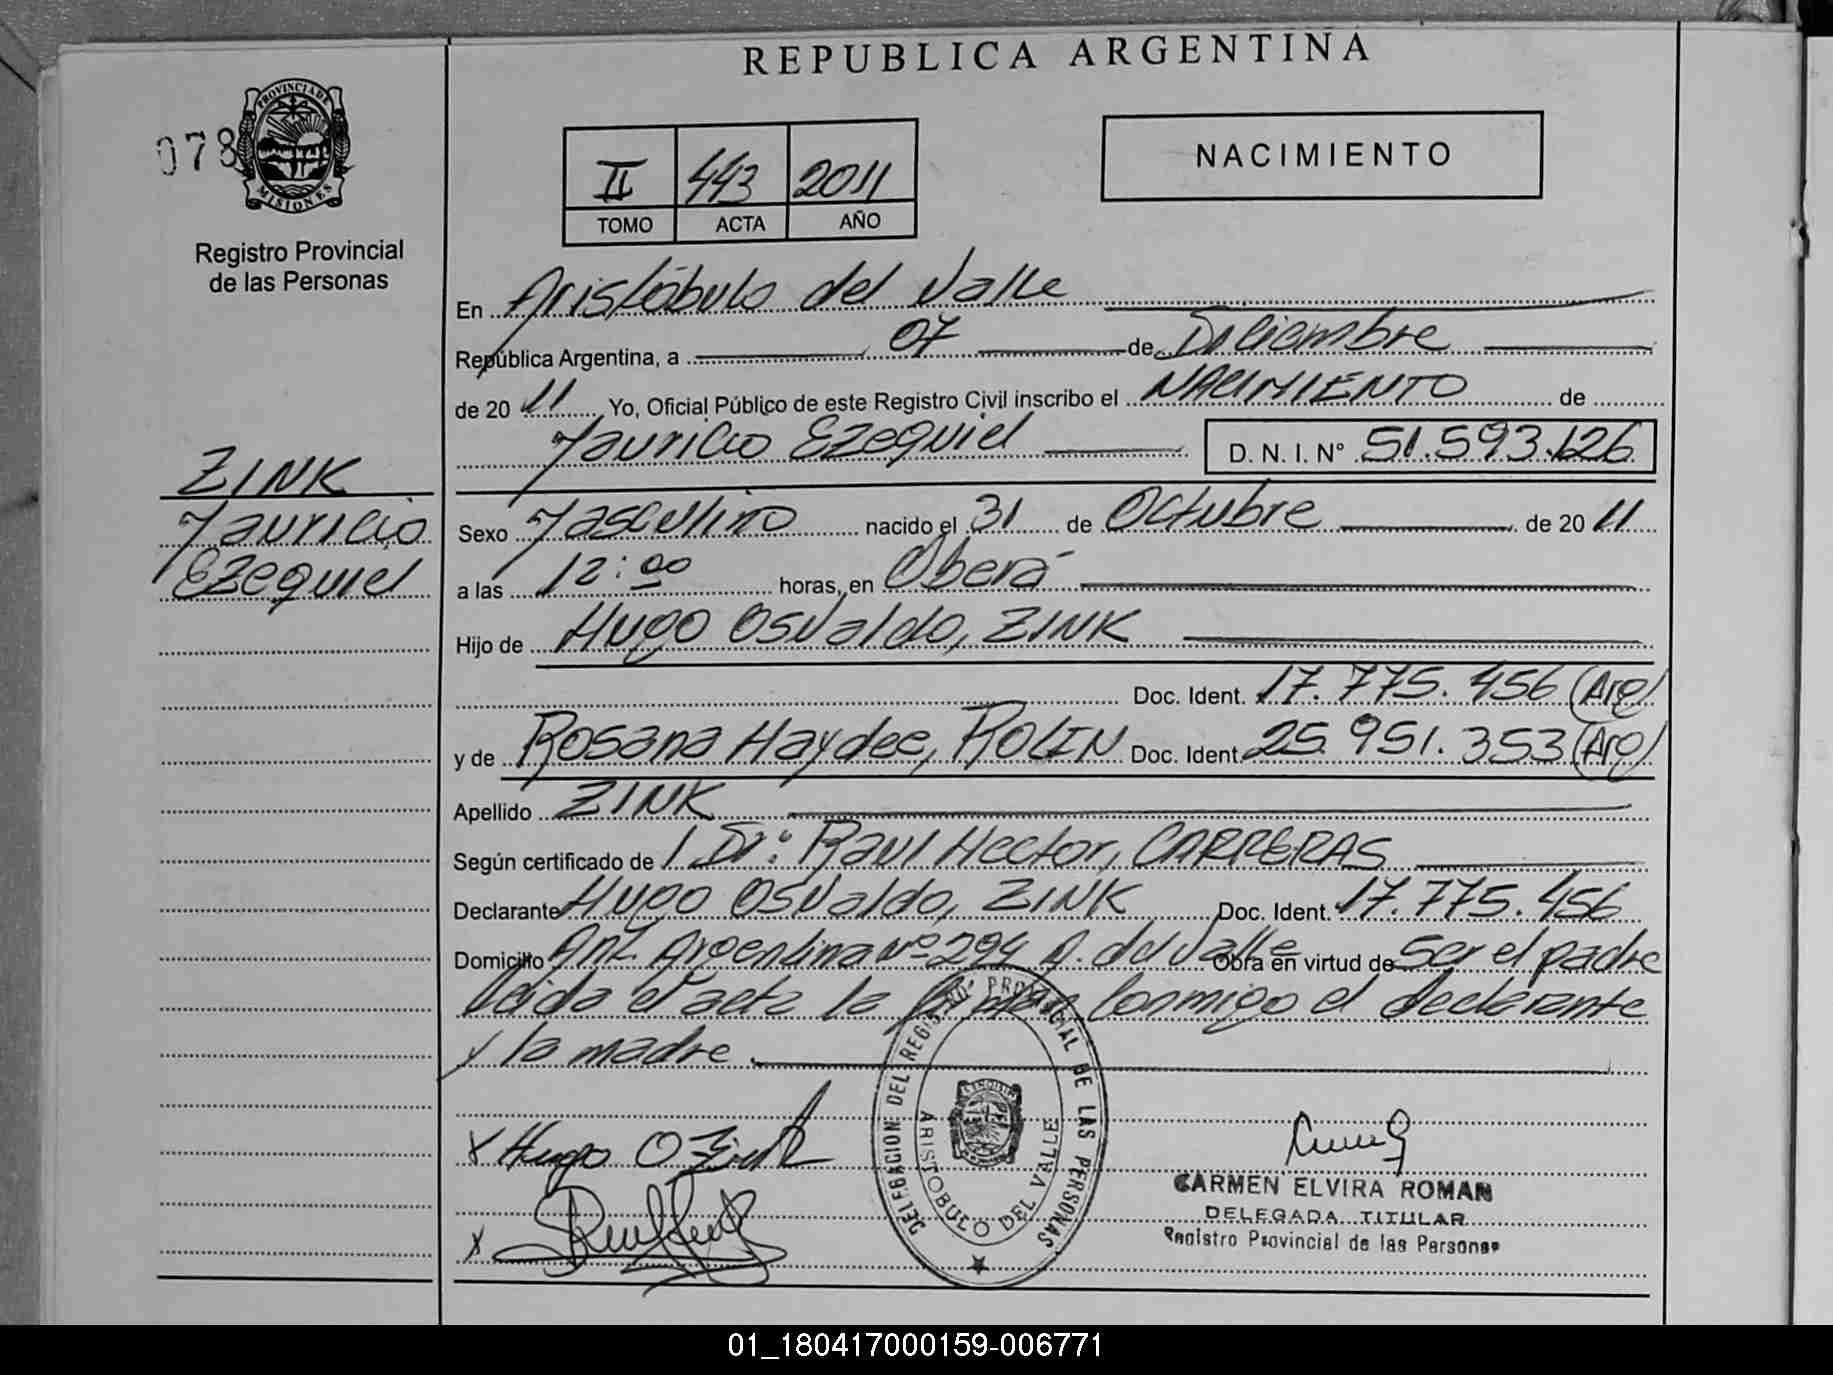 REPUBLICA ARGENTINA
078
PROVINCIA DE
MISIONES
Registro Provincial
de las Personas
II 443 2011
TOMO ACTA AÑO
NACIMIENTO
En Aristóbulo del Valle
República Argentina, a 07 de Diciembre
de 2011 Yo, Oficial Público de este Registro Civil inscribo el NACIMIENTO de
Mauricio Ezequiel D. N. I. Nº 51.593.126
ZINK
Mauricio
Ezequiel
Sexo Masculino nacido el 31 de Octubre de 2011
a las 12:00 horas, en Oberá
Hijo de Hugo Osvaldo, ZINK
Doc. Ident. 17.775.456 (Arg)
y de Rosana Haydee, ROLIN Doc. Ident. 25.951.353 (Arg)
Apellido ZINK
Según certificado de / Dr: Raul Hector, CARRERAS
Declarante Hugo Osvaldo, ZINK Doc. Ident. 17.775.456
Domicilio Ant. Argentina Nº 294 A. del Valle Obra en virtud de Ser el padre
Leida el acta la firman conmigo el declarante
y la madre.
X Hugo O Zink
X
DELEGACION DEL REGISTRO PROVINCIAL DE LAS PERSONAS
ARISTOBULO DEL VALLE
CARMEN ELVIRA ROMAN
DELEGADA TITULAR
Registro Provincial de las Personas
01_180417000159-006771